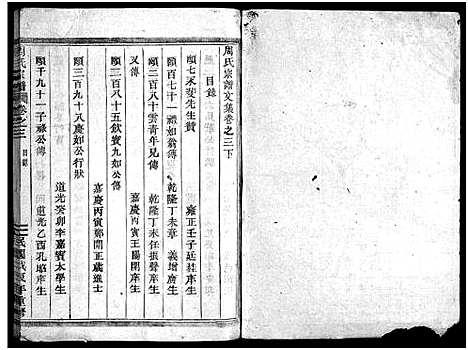 周氏宗譜文集卷之三下
目錄
頤七禾斐先生贊
雍正壬子廷桂庠生
頤百七十一禮如翁傳
乾隆丁未章義增廣生
頤二百八十雲青年兄傳
乾隆丁未任振聲庠生
又傳
嘉慶丙寅王陽開庠生
頤二百八十五欽賓九如公傳
嘉慶丙寅鄭開正歲進士
頤三百九十八慶如公行狀
道光癸卯李嘉賓太學生
頤千九十一子祿公傳
道光乙酉孔焰庠生
周氏宗譜
卷之三
目錄
民國
年重修